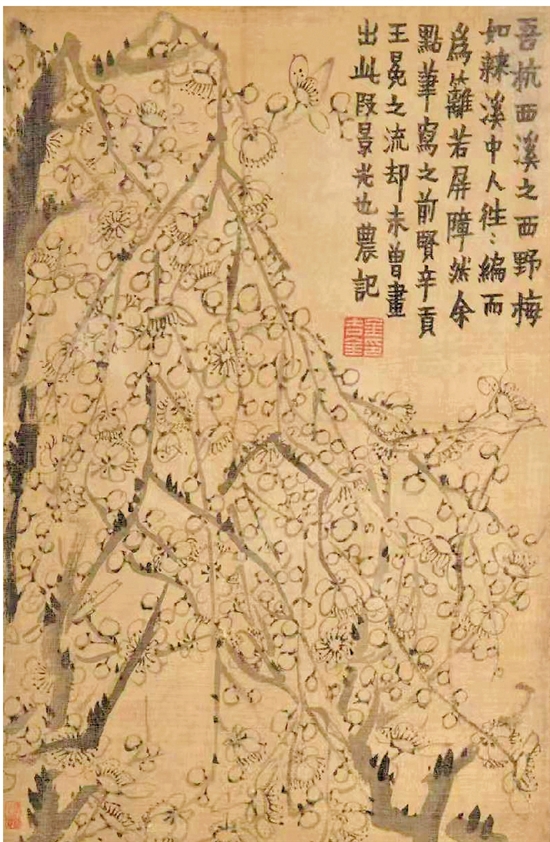 吾杭西溪之西野梅
如棘溪中人徃〻編而
爲籬若屏障然余
點筆寫之前賢辛貢
王冕之流却未曾畫
出此段景光也農記
金吉金印